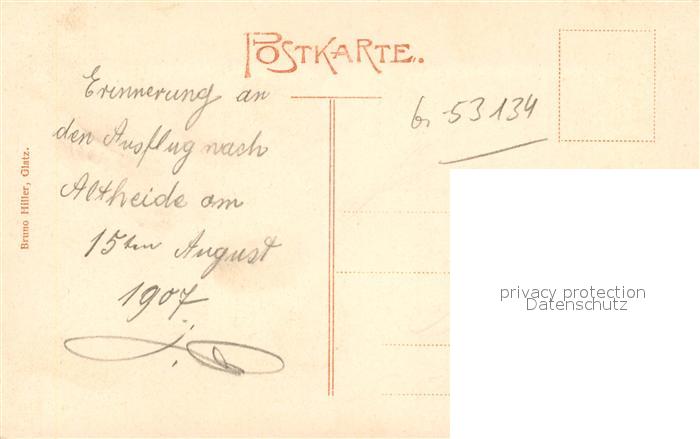 POSTKARTE.
Erinnerung an
den Ausflug nach
Altheide am
15ten August
1907
Bruno Hiller, Glatz.
53134
privacy protection
Datenschutz